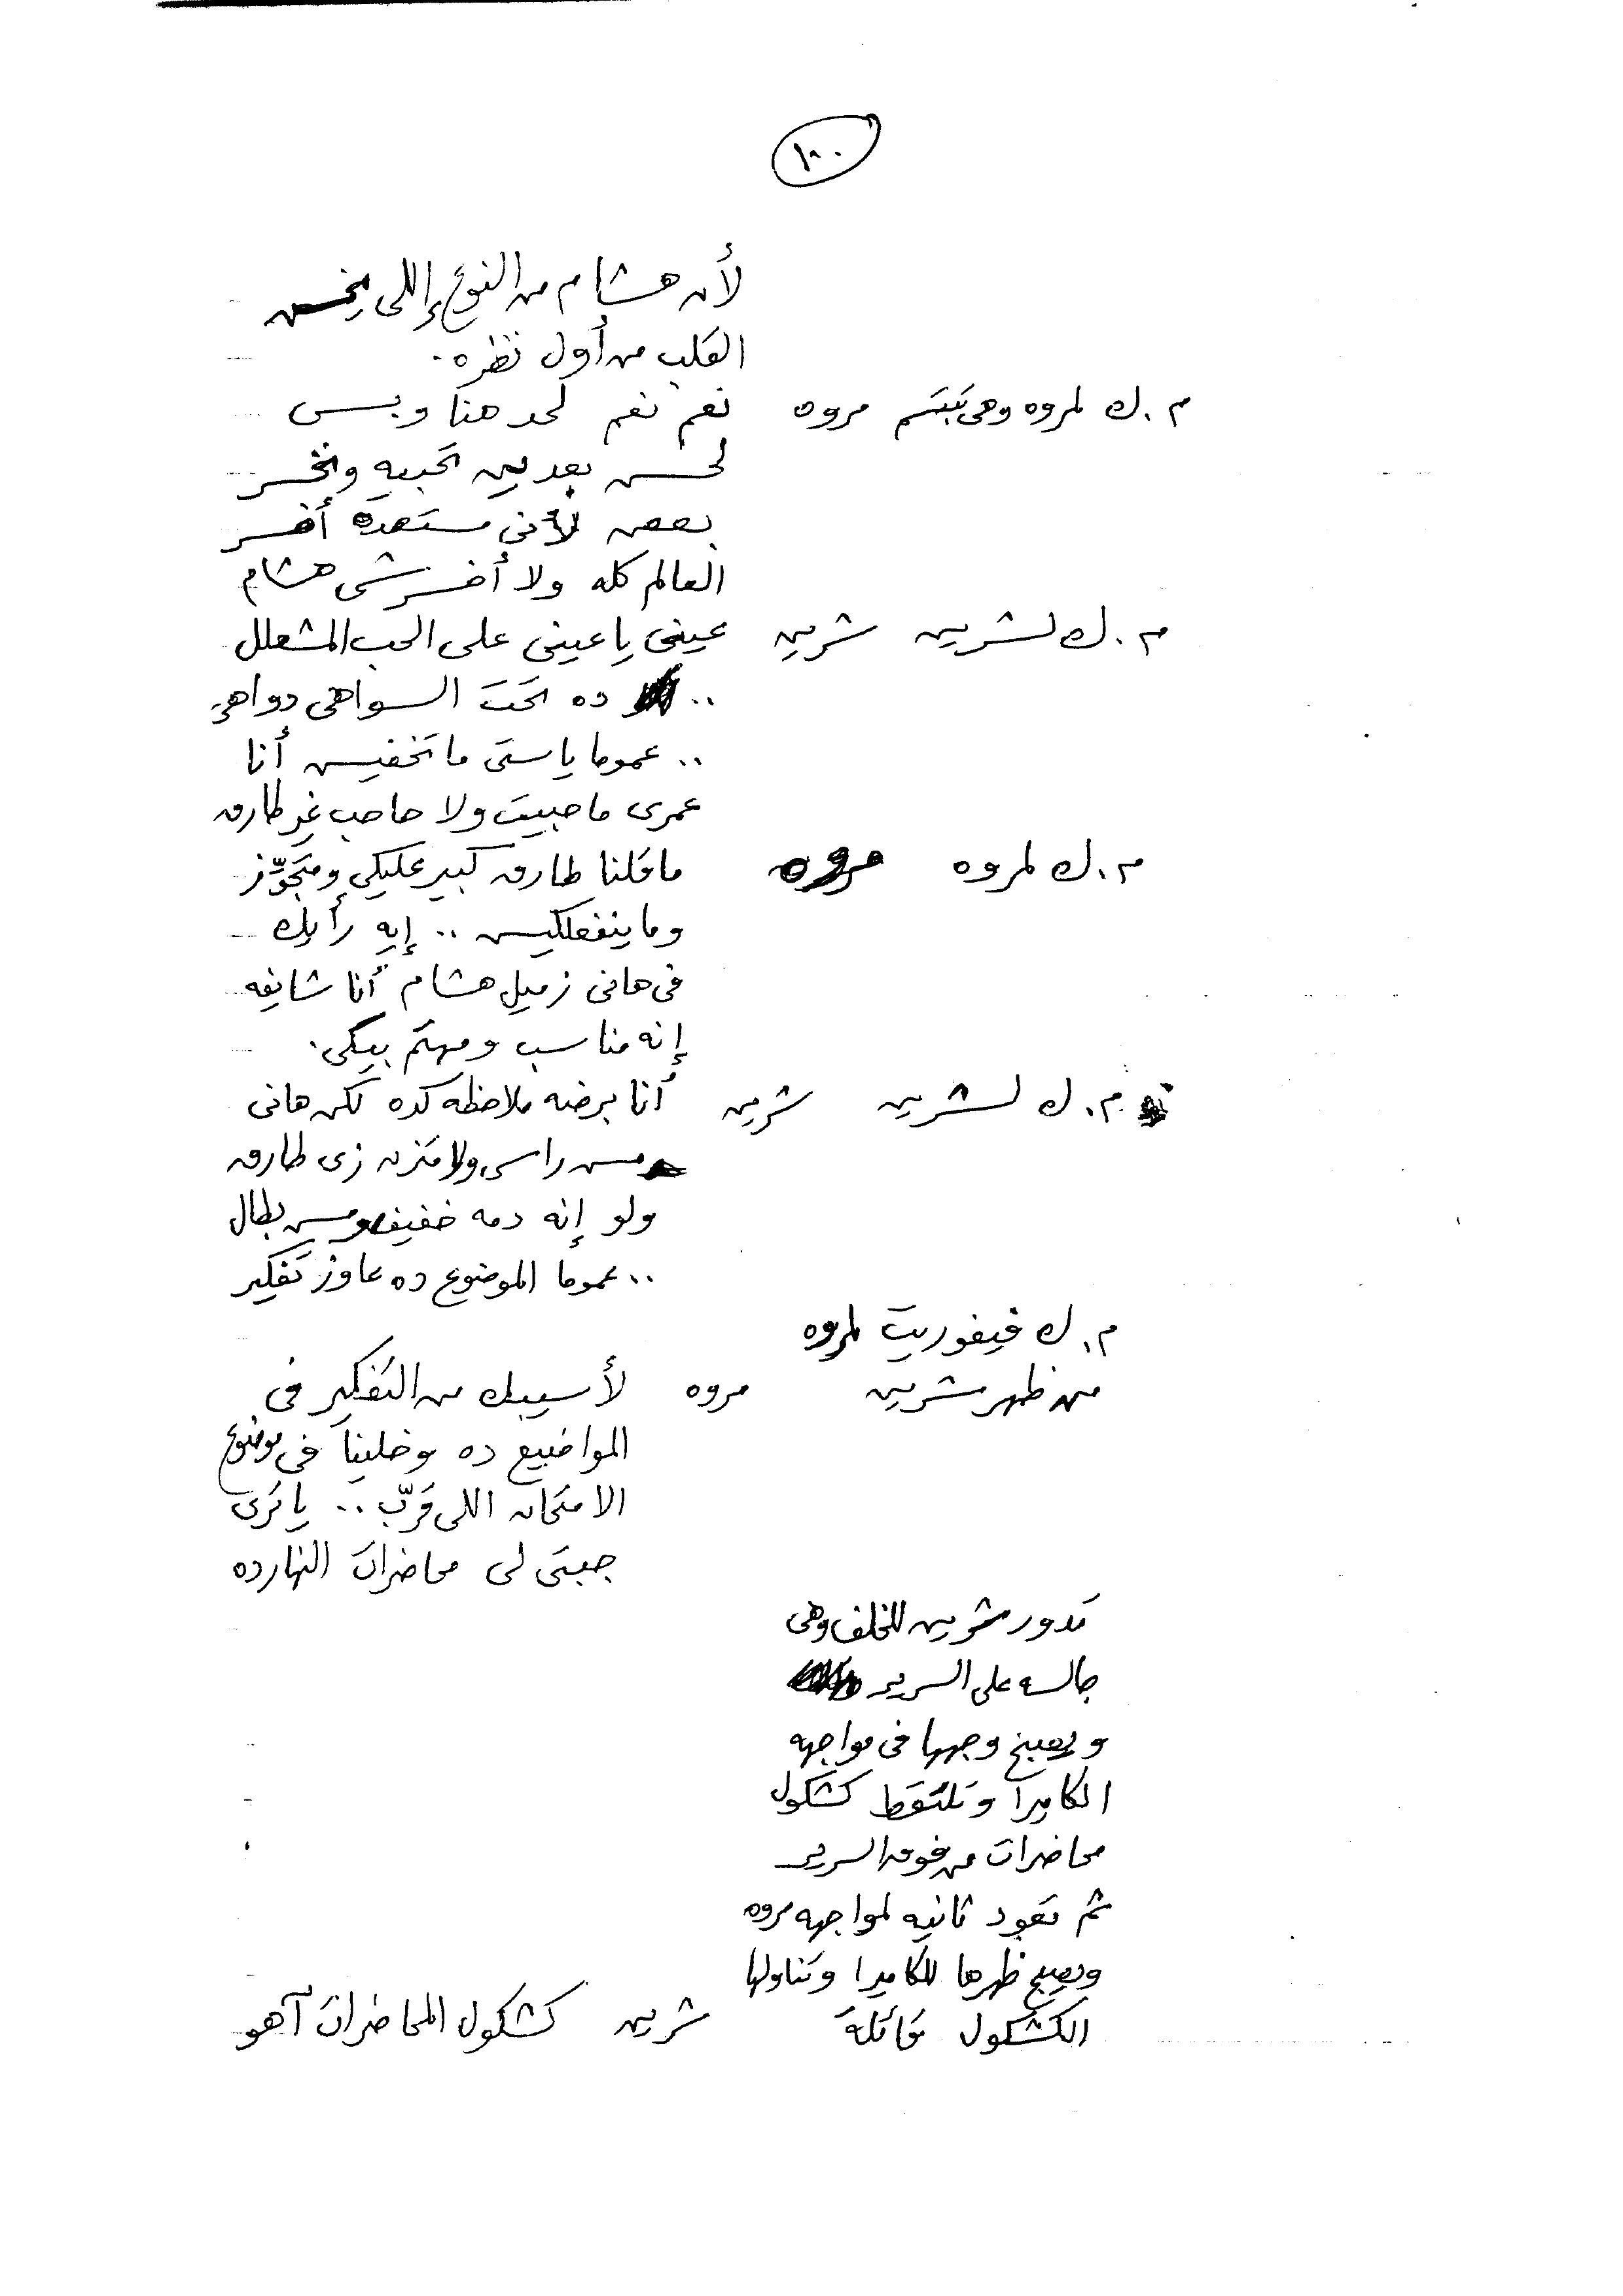 ١٠٠
لأن هشام من النوع إللى يخش
القلب من أول نظره.
م.ك لمروه وهى تبتسم مروه نعم نعم لحد هنا وبس
لحسن بعدين تحبيه ونخسر
بعض لأنى مستعده أخسر
العالم كله ولا أخسرشى هشام
م.ك لشرين شرين عينى يا عينى على الحب المشعلل
.. ده تحت السواهى دواهى
.. عموما ياستى ما تخفيش أنا
عمرى ما حبيت ولا حاحب غير طارق
م.ك لمروه مروه ما قلنا طارق كبير عليكى ومتجوّز
وما ينفعلكيش .. إيه رأيك
فى هانى زميل هشام أنا شايفه
إنه مناسب ومهتم بيكى.
م.ك لشرين شرين أنا برضه ملاحظه كده لكن هانى
مش راسى ولا متزن زى طارق
ولو إنه دمه خفيف ومش بطال
.. عموما الموضوع ده عاوز تفكير
م.ك فيفوريت لمروه
من ظهر شرين مروه لأ سيبك من التفكير فى
المواضيع ده وخلينا فى موضوع
الامتحان اللى قرّب .. يا ترى
جبتى لى محاضرات النهارده
تدور شرين للخلف وهى
جالسه على السرير
ويصبح وجهها فى مواجهه
الكاميرا وتلتقط كشكول
محاضرات من فوق السرير
ثم تعود ثانيه لمواجهه مروه
ويصبح ظهرها للكاميرا وتناولها
الكشكول قائلة شرين كشكول المحاضرات آهو